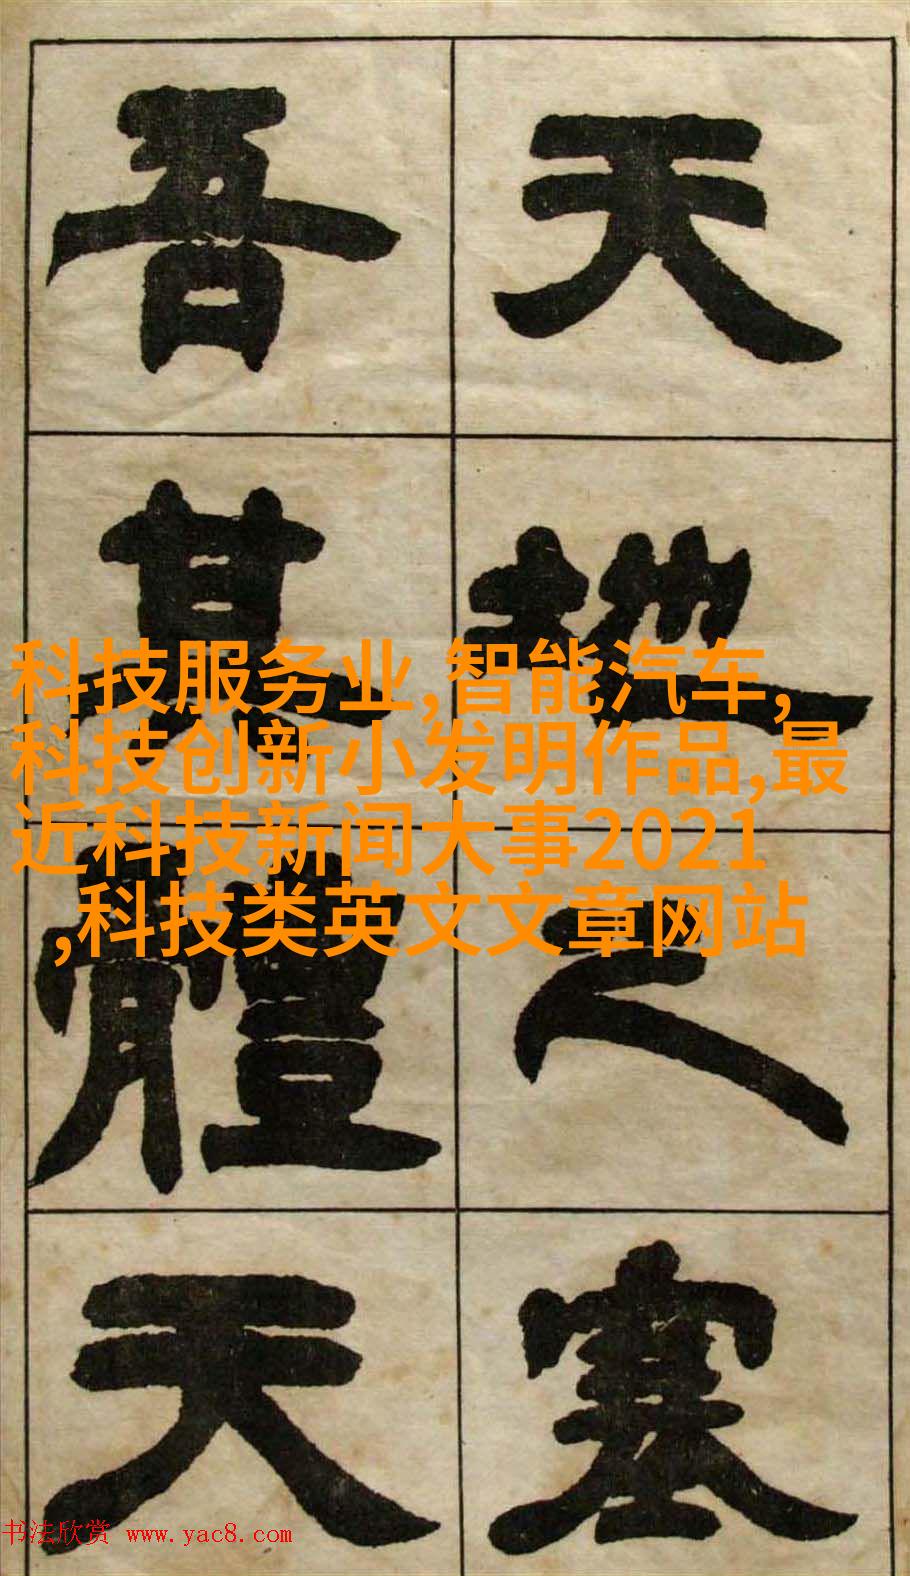 天地之塞
吾其體天
科技服务业,智能汽车,
科技创新小发明作品,最
近科技新闻大事2021
,科技类英文文章网站
书法欣赏 www.yac8.com